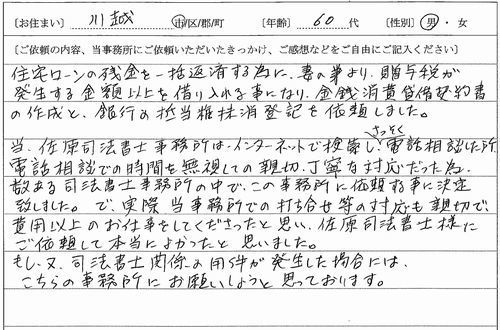 〔お住まい〕 川越 市/区/郡/町 〔年齢〕 60 代 〔性別〕 男・女
〔ご依頼の内容、当事務所にご依頼いただいたきっかけ、ご感想などをご自由にご記入ください〕
住宅ローンの残金を一括返済する為に、妻の輩より、贈与税が
発生する金額以上を借り入れる事になり、金銭消費貸借契約書
の作成と、銀行の抵当権抹消登記を依頼しました。
当、佐原司法書士事務所はインターネットで検索し、さっそく電話相談した所
電話相談での時間を無視しての親切、丁寧な対応だった為、
数ある司法書士事務所の中で、この事務所に依頼する事に決定
致しました。で、実際当事務所での打ち合せ等の対応も親切で、
費用以上のお仕事をしてくださったと思い、佐原司法書士様に
ご依頼して本当によかったと思いました。
もし、又、司法書士関係の用件が発生した場合には、
こちらの事務所にお願いしようと思っております。